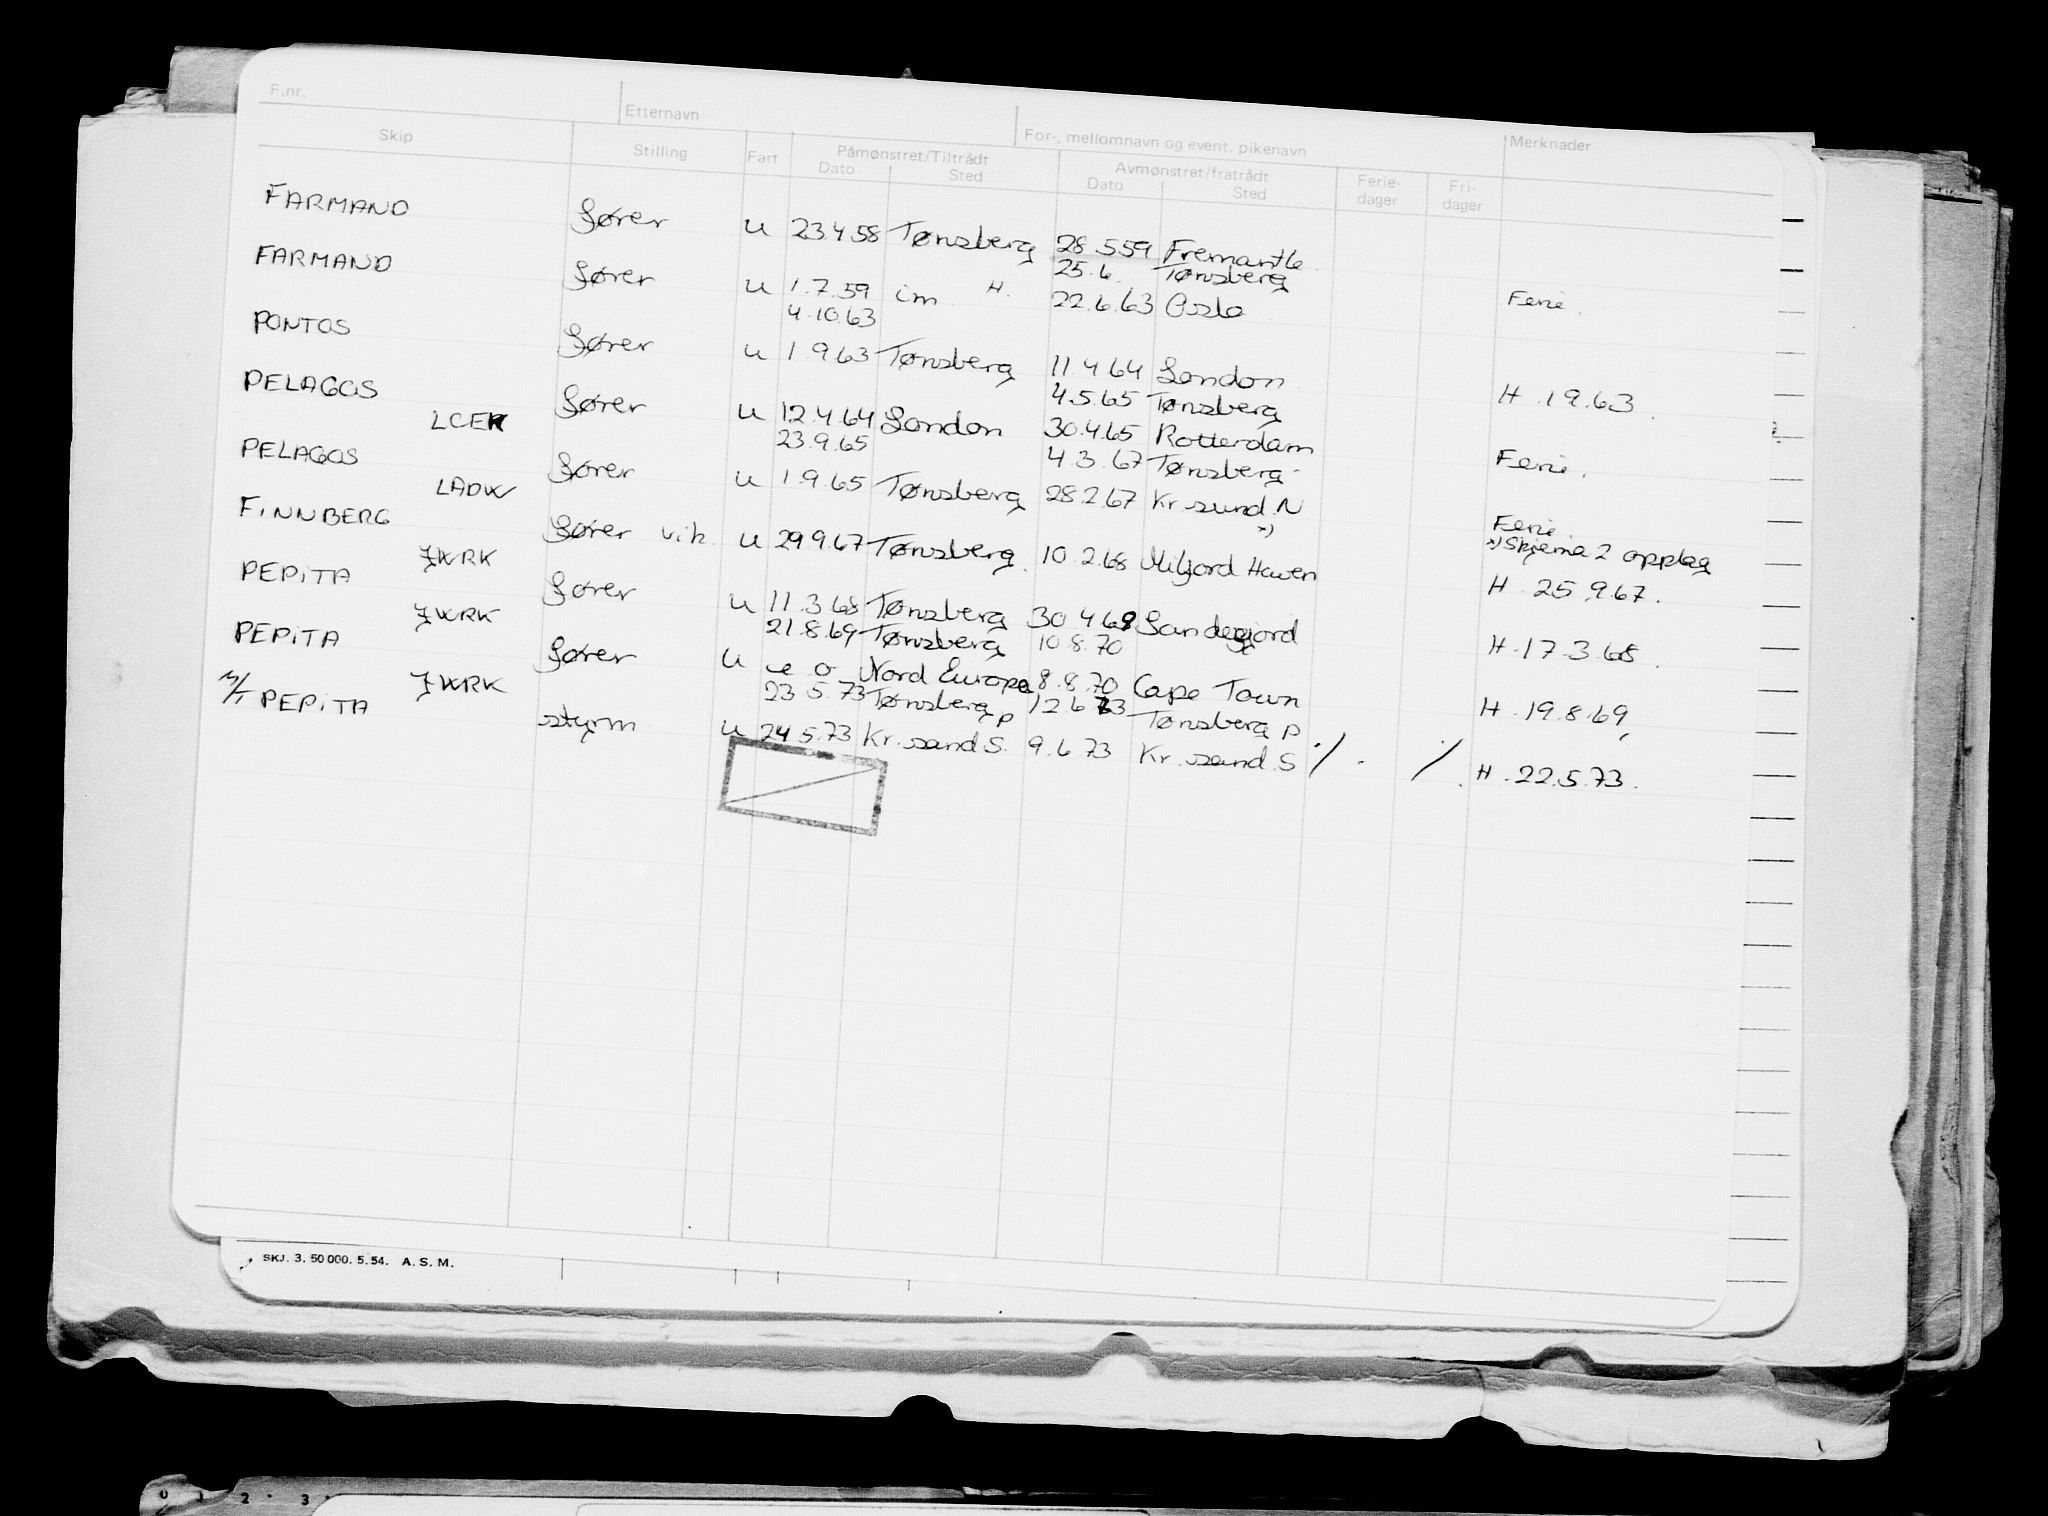 F.nr. Etternavn For-, mellomnavn og event. pikenavn Merknader
Skip Stilling Fart Påmønstret/Tiltrådt Avmønstret/fratrådt Ferie- Fri-
Dato Sted Dato Sted dager dager
FARMAND fører u 23.4.58 Tønsberg 28.5.59 Fremantle
25.6. Tønsberg
FARMAND fører u 1.7.59 im H. 22.6.63 Oslo Ferie.
4.10.63
PONTOS fører u 1.9.63 Tønsberg 11.4.64 London H. 1.9.63.
4.5.65 Tønsberg
PELAGOS LCEK fører u 12.4.64 London 30.4.65 Rotterdam Ferie.
23.9.65 4.3.67 Tønsberg
PELAGOS LADW fører u 1.9.65 Tønsberg 28.2.67 Kr.sund.N Ferie.
x) x) Skjema 2 opplag
FINNBERG fører vik. u 29.9.67 Tønsberg. 10.2.68 Milford Haven H. 25.9.67.
PEPITA JWRK fører u 11.3.68 Tønsberg 30.4.69 Sandefjord H. 17.3.68.
21.8.69 Tønsberg 10.8.70
PEPITA JWRK fører u e o Nord Europa 8.8.70 Cape Town H. 19.8.69,
23.5.73 Tønsberg p 12.6.73 Tønsberg p
M/T PEPITA JWRK styrm u 24.5.73 Kr.sand S. 9.6.73 Kr.sand.S ./. ./. H. 22.5.73.
SKJ. 3. 50 000. 5. 54. A. S. M.
0 1 2 3